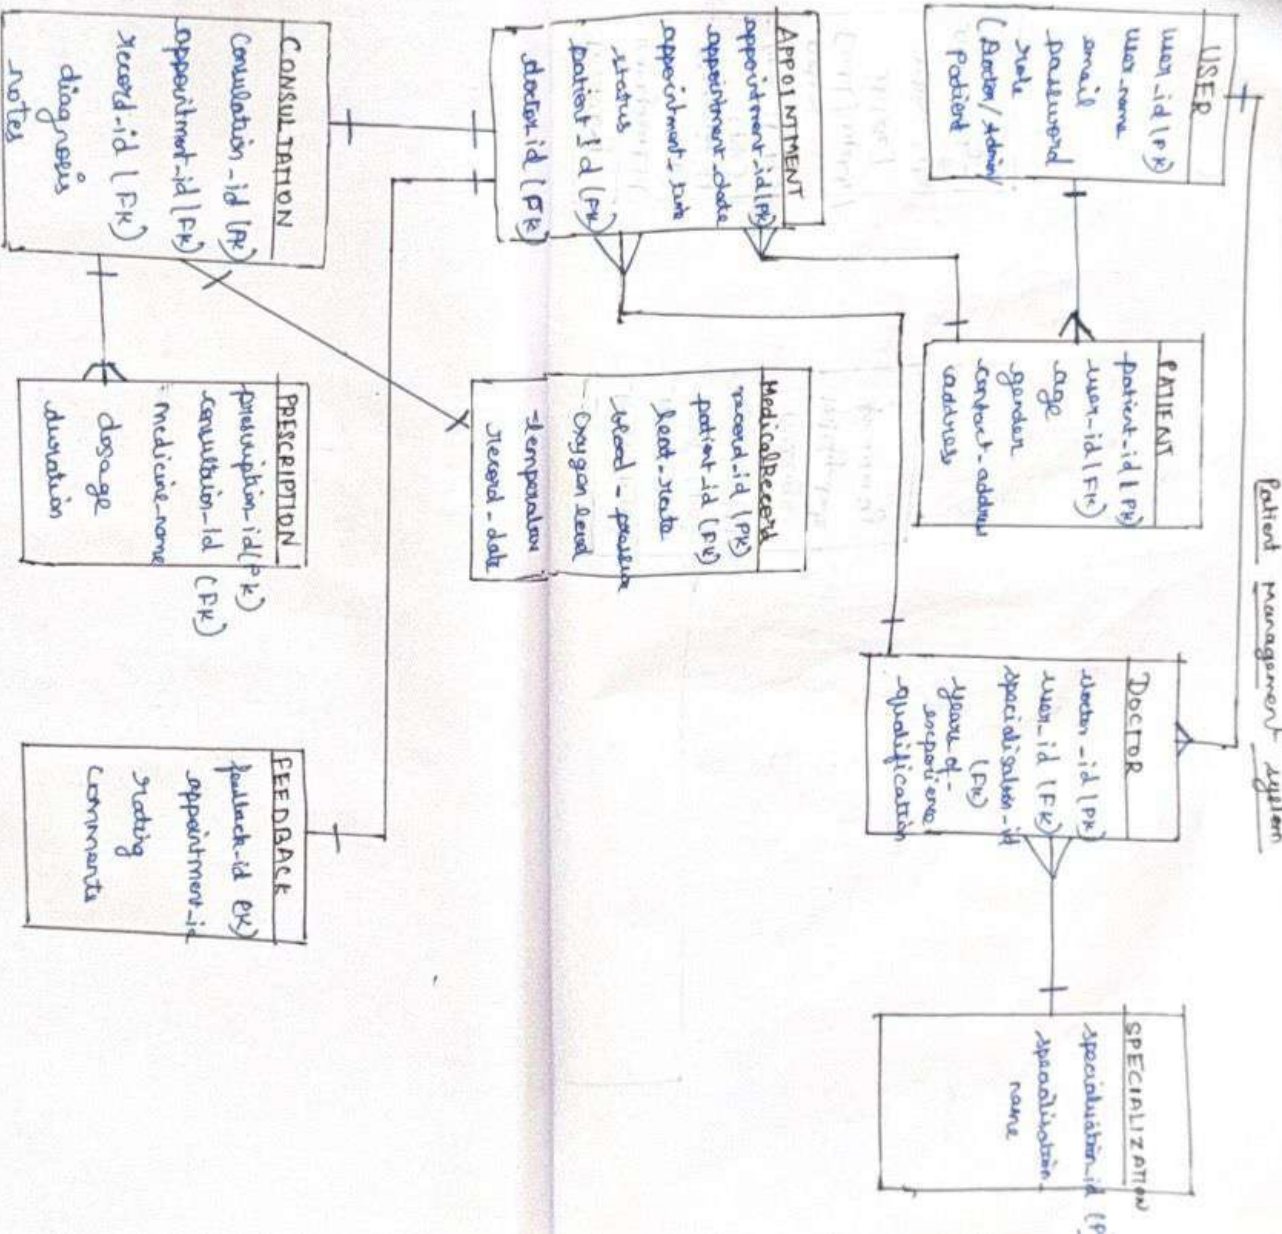 Patient Management System
USER
user_id (PK)
user_name
email
password
role
(Doctor/Admin/
Patient)
PATIENT
patient_id (PK)
user_id (FK)
age
gender
contact_address
address
DOCTOR
doctor_id (PK)
user_id (FK)
specialisation_id
(FK)
years of-
experience
qualification
SPECIALIZATION
specialisation_id (P
specialisation_
name
APPOINTMENT
appointment_id (PK)
appointment_date
appointment_time
status
patient Id (FK)
doctor id (FK)
MedicalRecord
record_id (PK)
patient_id (FK)
heart_rate
blood_pressure
Oxygen level
temperature
record_date
CONSULTATION
Consulation_id (PK)
appointment_id (FK)
record-id (FK)
diagnosis
notes
PRESCRIPTION
prescription_id (PK)
consultation_id (FK)
medicine_name
dosage
duration
FEEDBACK
feedback_id (PK)
appointment_id
rating
comments